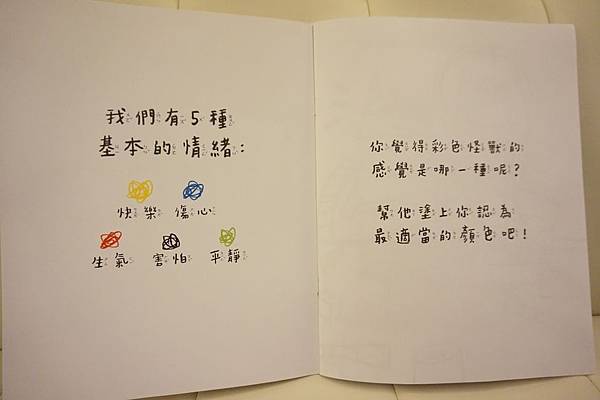 我們有5種
基本的情緒:
快樂 傷心
生氣 害怕 平靜
你覺得彩色怪獸的
感覺是哪一種呢?
幫他塗上你認為
最適當的顏色吧!